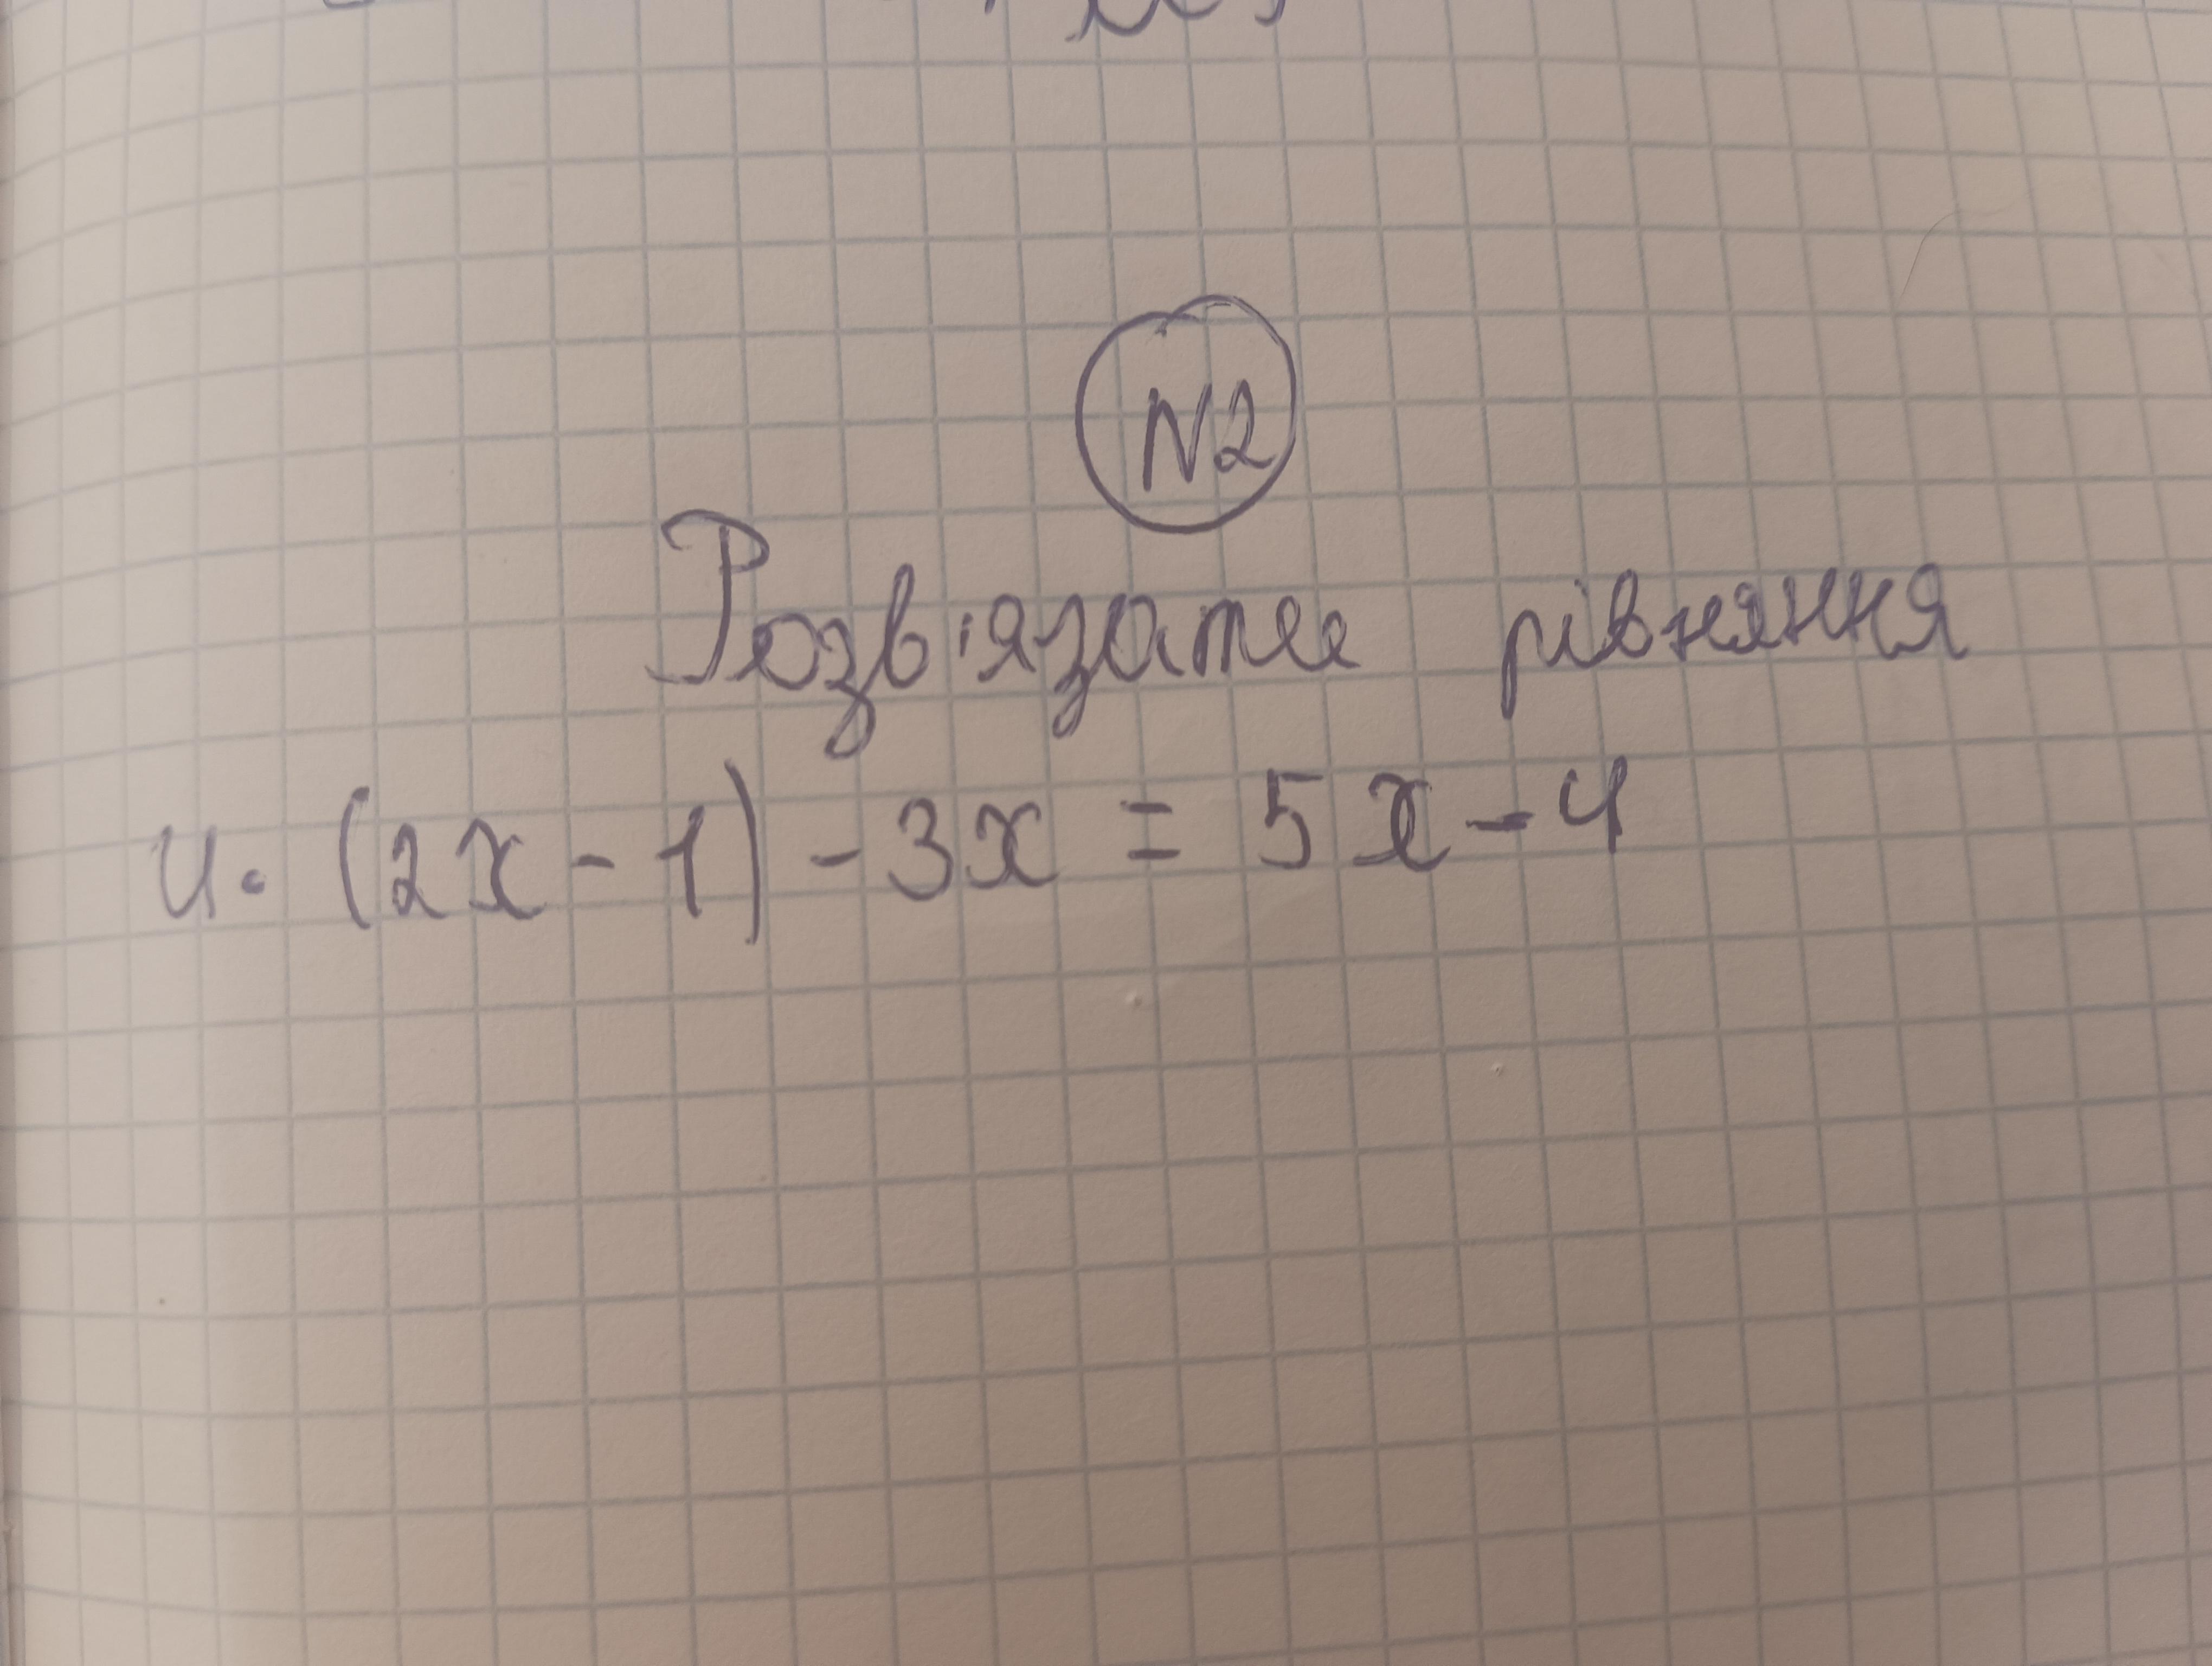 N2
Розв'язати рівняння
4. (2x - 1) - 3x = 5x - 4